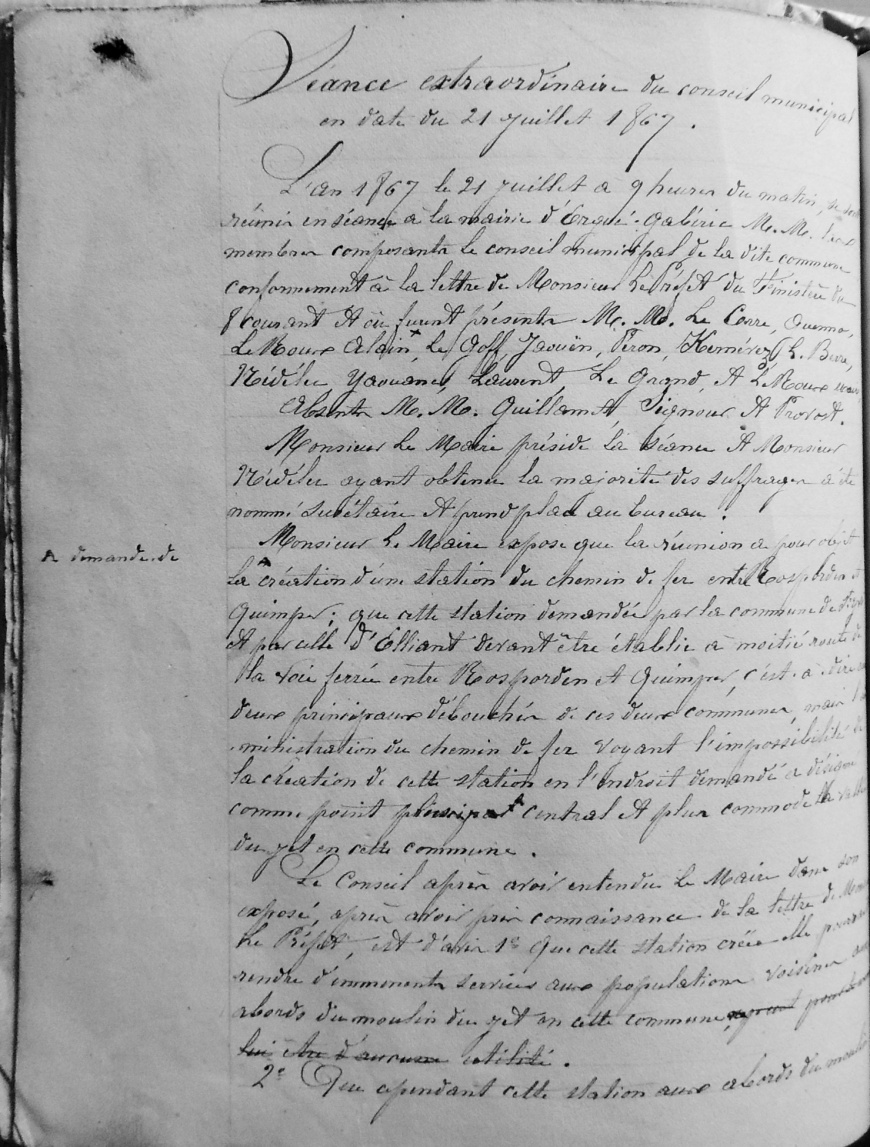 Séance extraordinaire du conseil municipal
en date du 21 juillet 1867.
L'an 1867 le 21 juillet a 9 heures du matin, se sont
réunis en séance à la mairie d'Ergué-gabéric M. M. les
membres composants le conseil municipal de la dite commune
conformement à la lettre de Monsieur Le Préfet du Finistère du
8 courant et où furent présents M. M. Le Corre,
Le Roux Alain, Le Goff, Jaouën, Péron, L. Berre,
Nédélec, Yaouanc, Laurent, Le Grand, et Le Roux
Absents M. M. Quillam et Signour et Provost.
Monsieur Le Maire préside la séance et Monsieur
Nédélec ayant obtenu la majorité des suffrages a été
nommé secrétaire et prend place au bureau.
Monsieur Le Maire expose que la réunion a pour objet
A demande de
la création d'une station du chemin de fer entre Rosporden et
Quimper; que cette station demandée par la commune de
et par celle d'Elliant devant être établie à moitié route de
la voie ferrée entre Rosporden et Quimper, c'est-à-dire
deux principaux débouchés de ces deux communes, mais l'
ministration du chemin de fer voyant l'impossibilité de
la création de cette station en l'endroit demandé a désigné
comme point central et plus commode la vallée
du yet en cette commune.
Le Conseil après avoir entendu Le Maire dans son
exposé, après avoir pris connaissance de la lettre de
Le Préfet, est d'avis 1° que cette station créée elle pourra
rendre d'imminents services aux populations voisines aux
abords du moulin du yet en cette commune
lui être d'aucune utilité.
2° Que cependant cette station aux abords du moulin